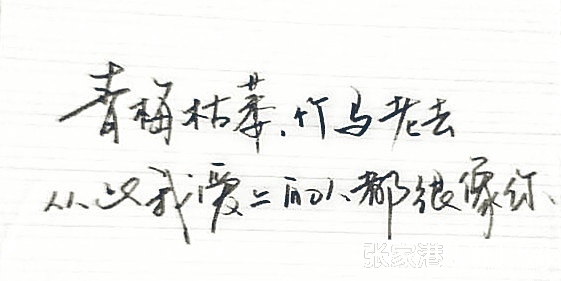 青梅枯萎,竹马老去
从此我爱上的人都很像你、
张家港